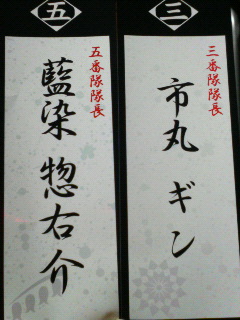 三
三番隊隊長
市丸 ギン
五
五番隊隊長
藍染 惣右介